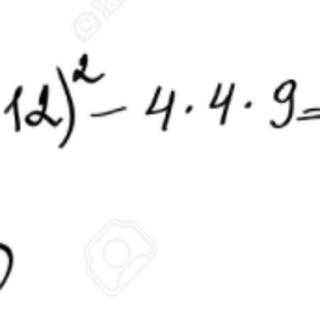 12)² - 4 · 4 · 9 =